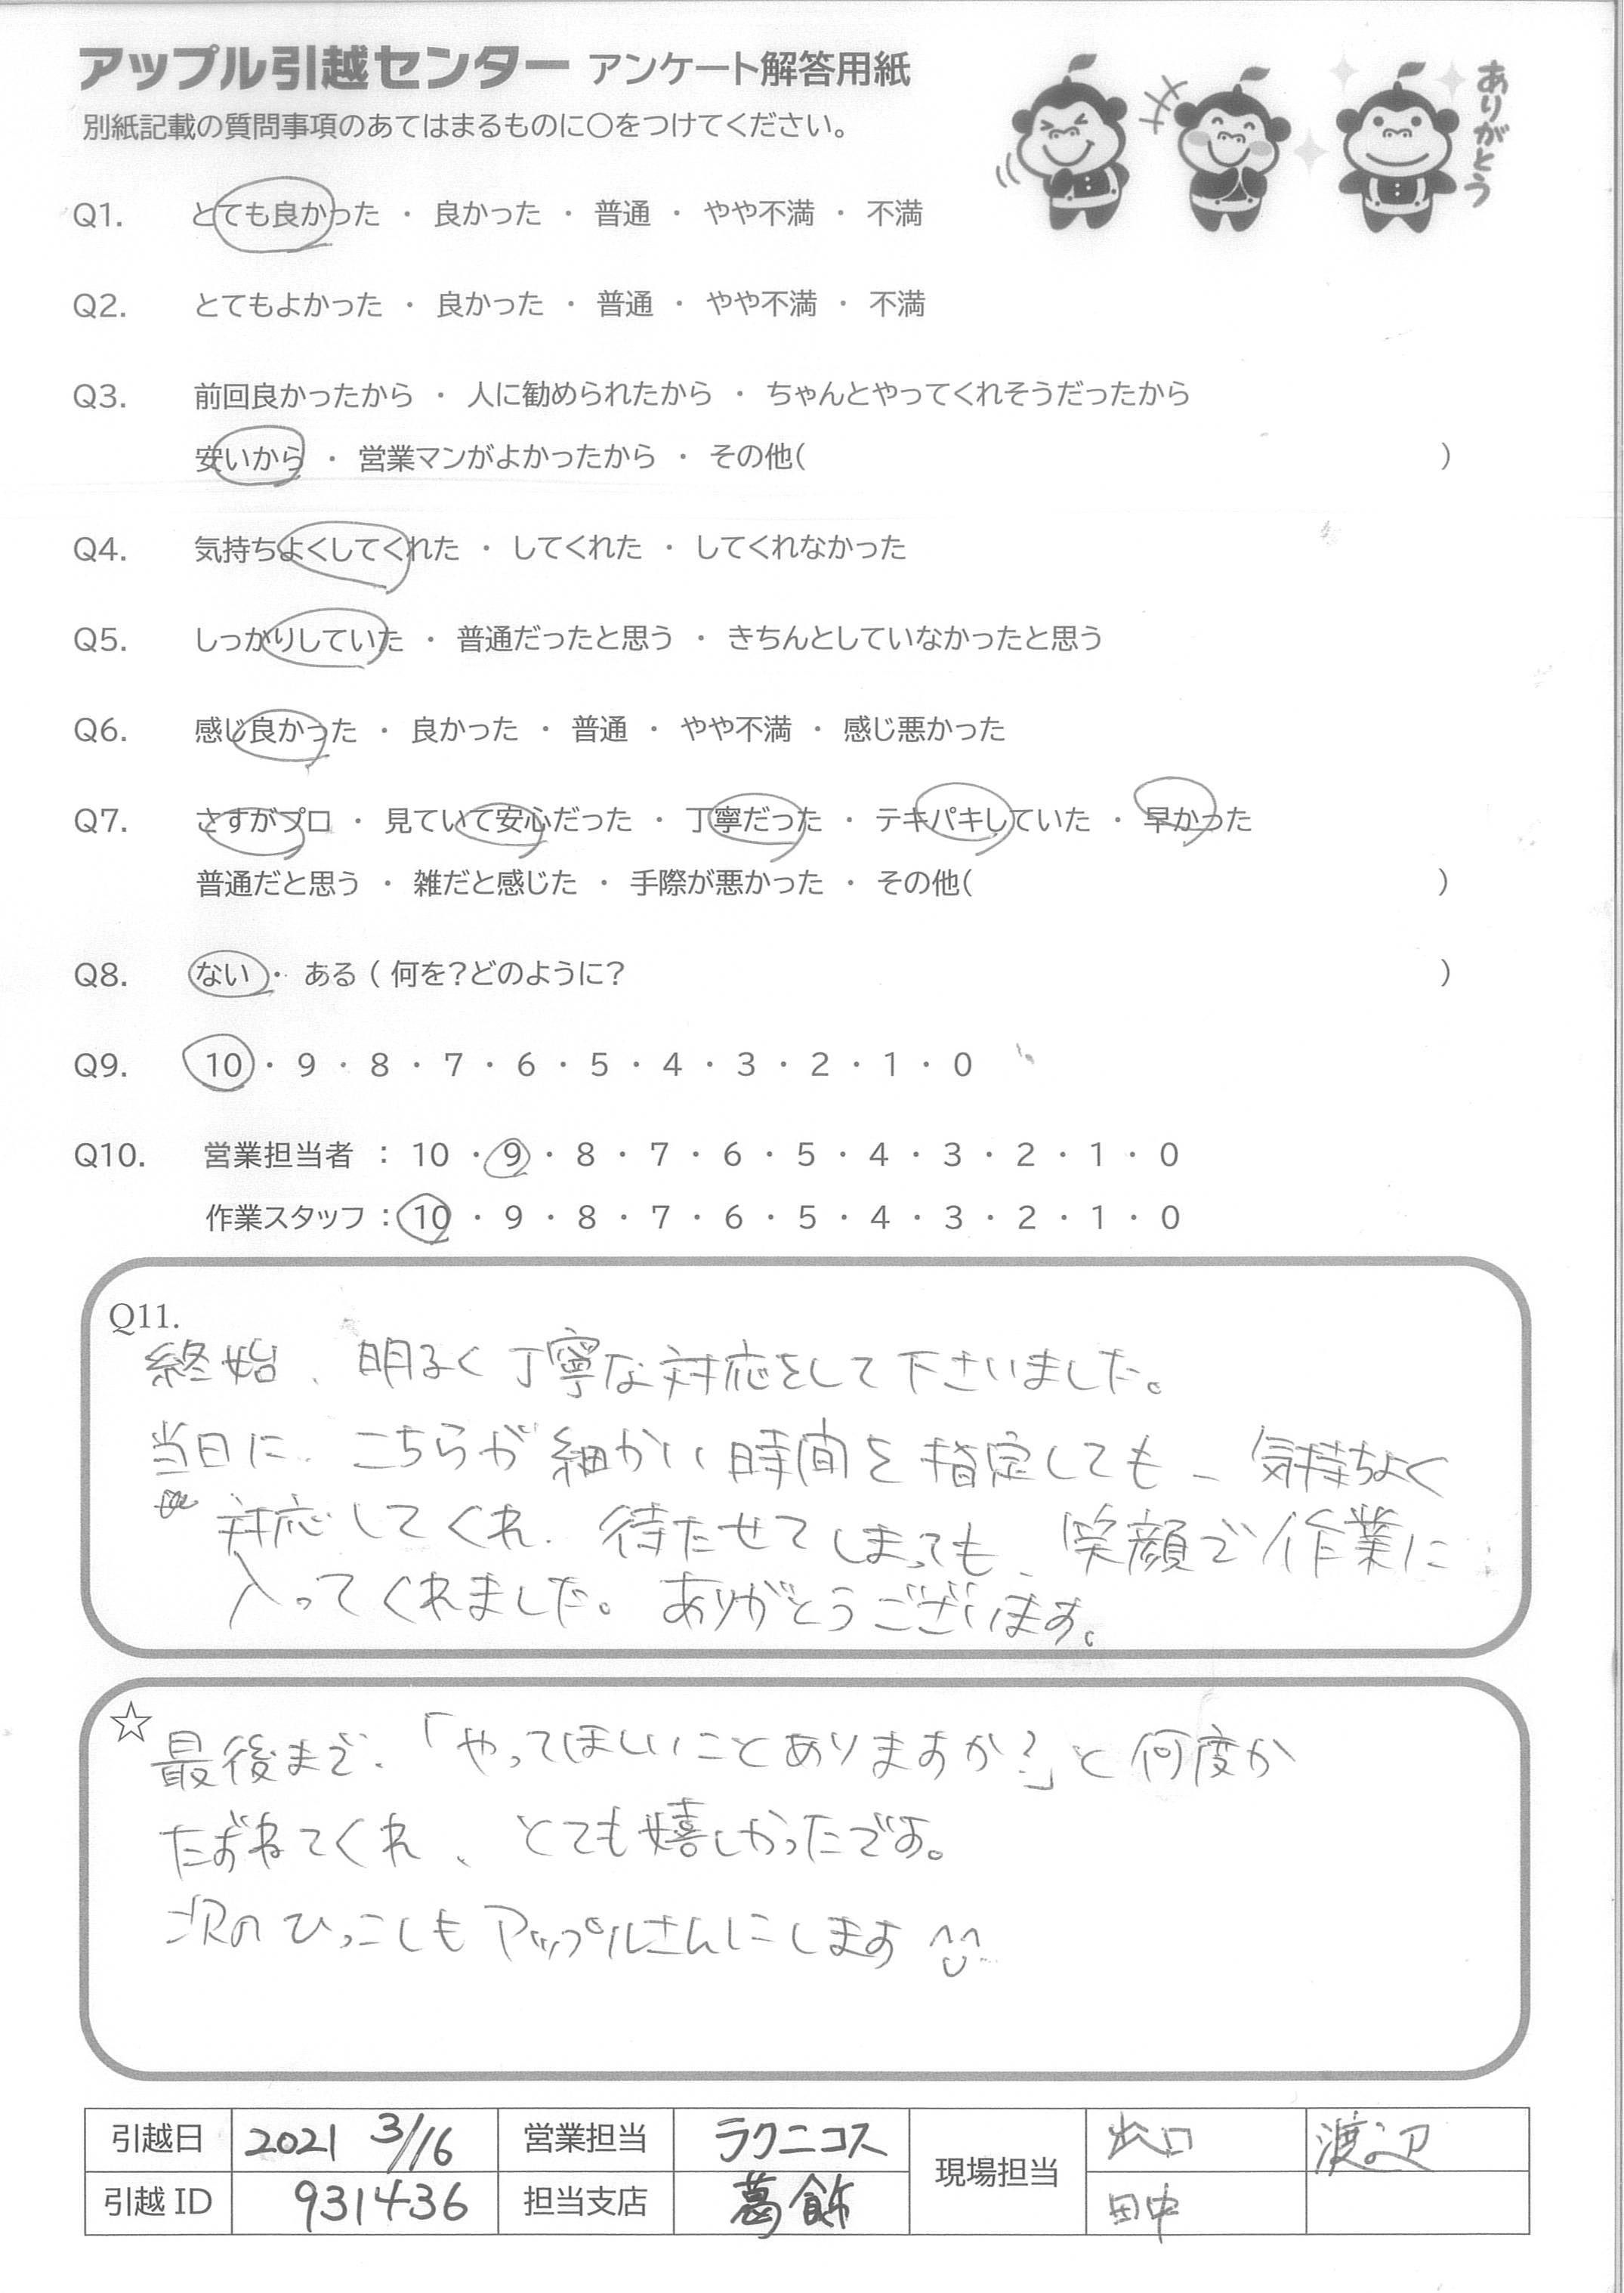 アップル引越センター アンケート解答用紙
別紙記載の質問事項のあてはまるものに○をつけてください。
ありがとう
Q1. とても良かった ・ 良かった ・ 普通 ・ やや不満 ・ 不満
Q2. とてもよかった ・ 良かった ・ 普通 ・ やや不満 ・ 不満
Q3. 前回良かったから ・ 人に勧められたから ・ ちゃんとやってくれそうだったから
安いから ・ 営業マンがよかったから ・ その他( )
Q4. 気持ちよくしてくれた ・ してくれた ・ してくれなかった
Q5. しっかりしていた ・ 普通だったと思う ・ きちんとしていなかったと思う
Q6. 感じ良かった ・ 良かった ・ 普通 ・ やや不満 ・ 感じ悪かった
Q7. さすがプロ ・ 見ていて安心だった ・ 丁寧だった ・ テキパキしていた ・ 早かった
普通だと思う ・ 雑だと感じた ・ 手際が悪かった ・ その他( )
Q8. ない ・ ある ( 何を?どのように? )
Q9. 10 ・ 9 ・ 8 ・ 7 ・ 6 ・ 5 ・ 4 ・ 3 ・ 2 ・ 1 ・ 0
Q10. 営業担当者 : 10 ・ 9 ・ 8 ・ 7 ・ 6 ・ 5 ・ 4 ・ 3 ・ 2 ・ 1 ・ 0
作業スタッフ : 10 ・ 9 ・ 8 ・ 7 ・ 6 ・ 5 ・ 4 ・ 3 ・ 2 ・ 1 ・ 0
Q11.
終始、明るく丁寧な対応をして下さいました。
当日に、こちらが細かい時間を指定しても、気持ちよく
対応してくれ、待たせてしまっても、笑顔で作業に
入ってくれました。ありがとうございます。
☆
最後まで、「やってほしいことありますか?」と何度か
たずねてくれ、とても嬉しかったです。
次のひっこしもアップルさんにします
引越日 2021 3/16 営業担当 ラクニコス 現場担当 出口 渡辺
引越 ID 931436 担当支店 葛飾 田中